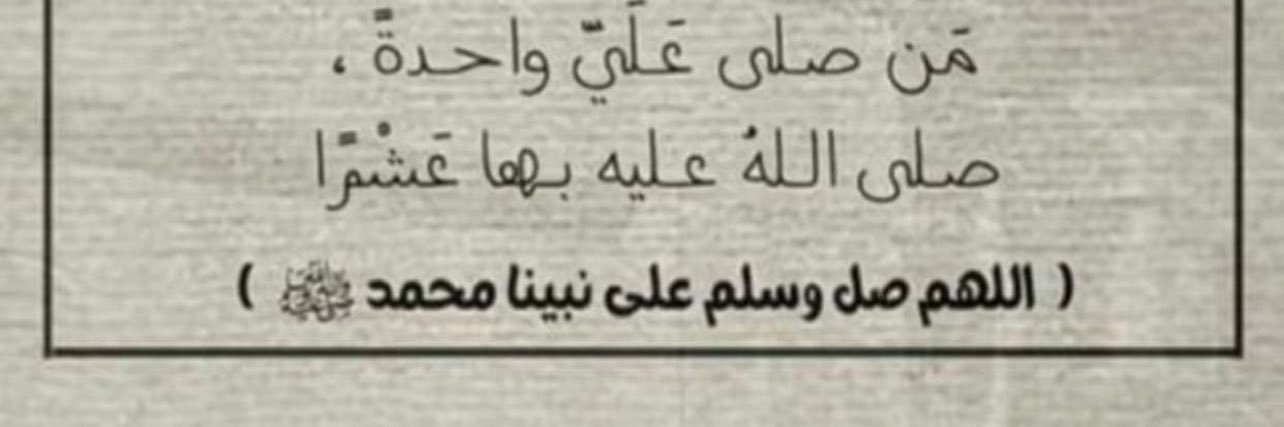 مَن صلى عَلَيّ واحدةً ،
صلى اللهُ عليه بها عَشْرًا
( اللهم صل وسلم على نبينا محمد ﷺ )